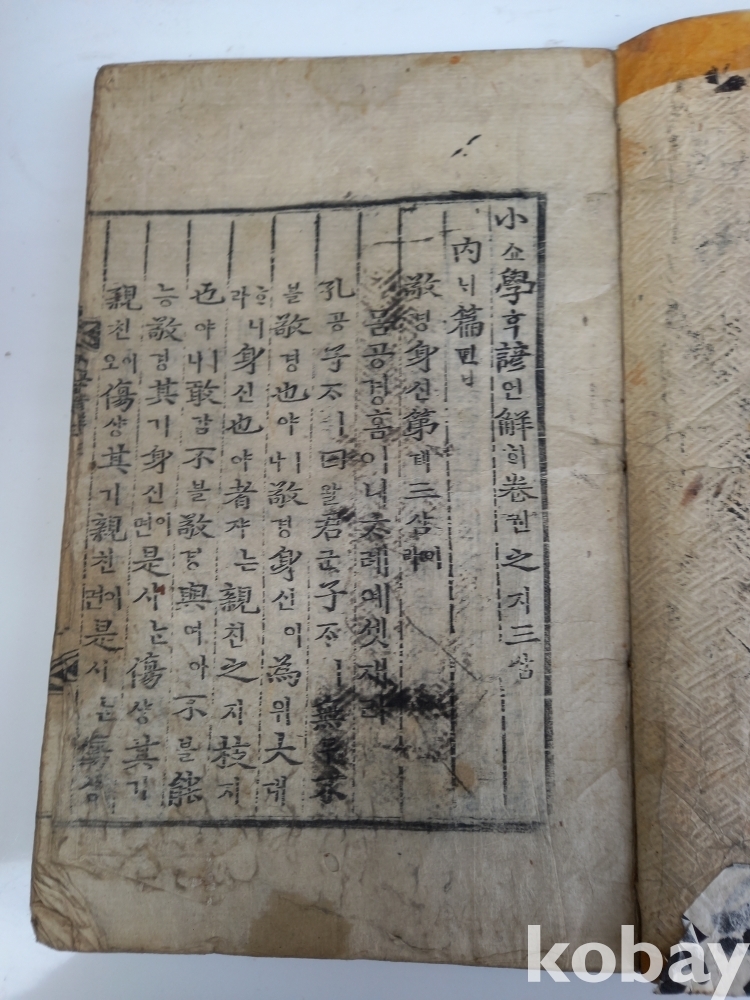 小쇼學ᄒᆞᆨ諺언解ᄒᆡ卷권之지三삼
內ᄂᆡ篇편
敬경身신第뎨三삼이라
몸공경홈이니ᄎᆞ례예셋재라
孔공子ᄌᆞㅣ曰왈君군子ᄌᆞㅣ無
블敬경也야ㅣ나敬경身신이爲위大대
ᄒᆞ니라身신也야者쟈ᄂᆞᆫ親친之지枝지
也야ㅣ니敢감不블敬경與여아不블能
능敬경其기身신이면是시ᄂᆞᆫ傷샹其기
親친이오傷샹其기親친이면是시ᄂᆞᆫ傷샹
kobay